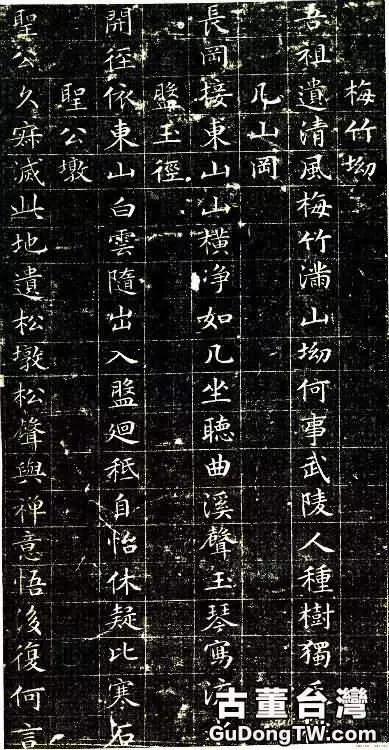 梅竹坳
吾祖遺清風梅竹滿山坳何事武陵人種樹獨
几山岡
長岡接東山山橫净如几坐聽曲溪聲玉琴寫
盤玉徑
開徑依東山白雲隨出入盤廻秖自怡休疑比寒石
聖公墩
聖公久寂滅此地遺松墩松聲與禅意悟後復何言
古董台灣
GuDongTW.com